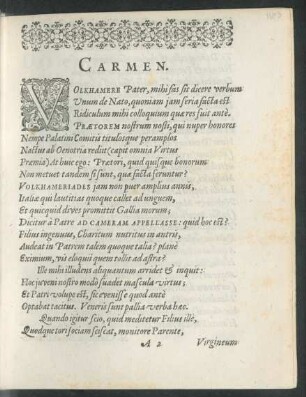 CARMEN.
VOLKHAMERE Pater, mihi fas sit dicere verbum
Unum de Nato, quoniam jam seria facta est
Ridiculum mihi colloquium qua res fuit antè.
PRÆTOREM nostrum nosti, qui nuper honores
Nempe Palatini Comitis titulosque peramplos
Nactus ab Oenotria redit (capit omnia Virtus
Præmia) At huic ego: Prætori, quid quisque bonorum
Non metuet tandem si sunt, quæ facta feruntur?
VOLKHAMERIADES jam non puer amplius annis,
Italiæ qui lautitias quoque callet ad unguem,
Et quicquid dives promittit Gallia morum,
Dicitur à Patre AD CAMERAM APPELLASSE: quid hoc est?
Filius ingenuus, Charitum nutritus in antris,
Audeat in Patrem talem quoque talia? planè
Eximium, vis eloquii quem tollit ad astra?
Ille mihi illudens aliquantum arridet & inquit:
Hoc juveni nostro modò suadet mascula virtus;
Et Patri volupe est, sic evenisse quod antè
Optabat tacitus. Veneris sunt pallia verba hæc.
Quando igitur scio, quid meditetur Filius ille,
Quodque tori sociam sciscat, monitore Parente,
A 2 Virgineum